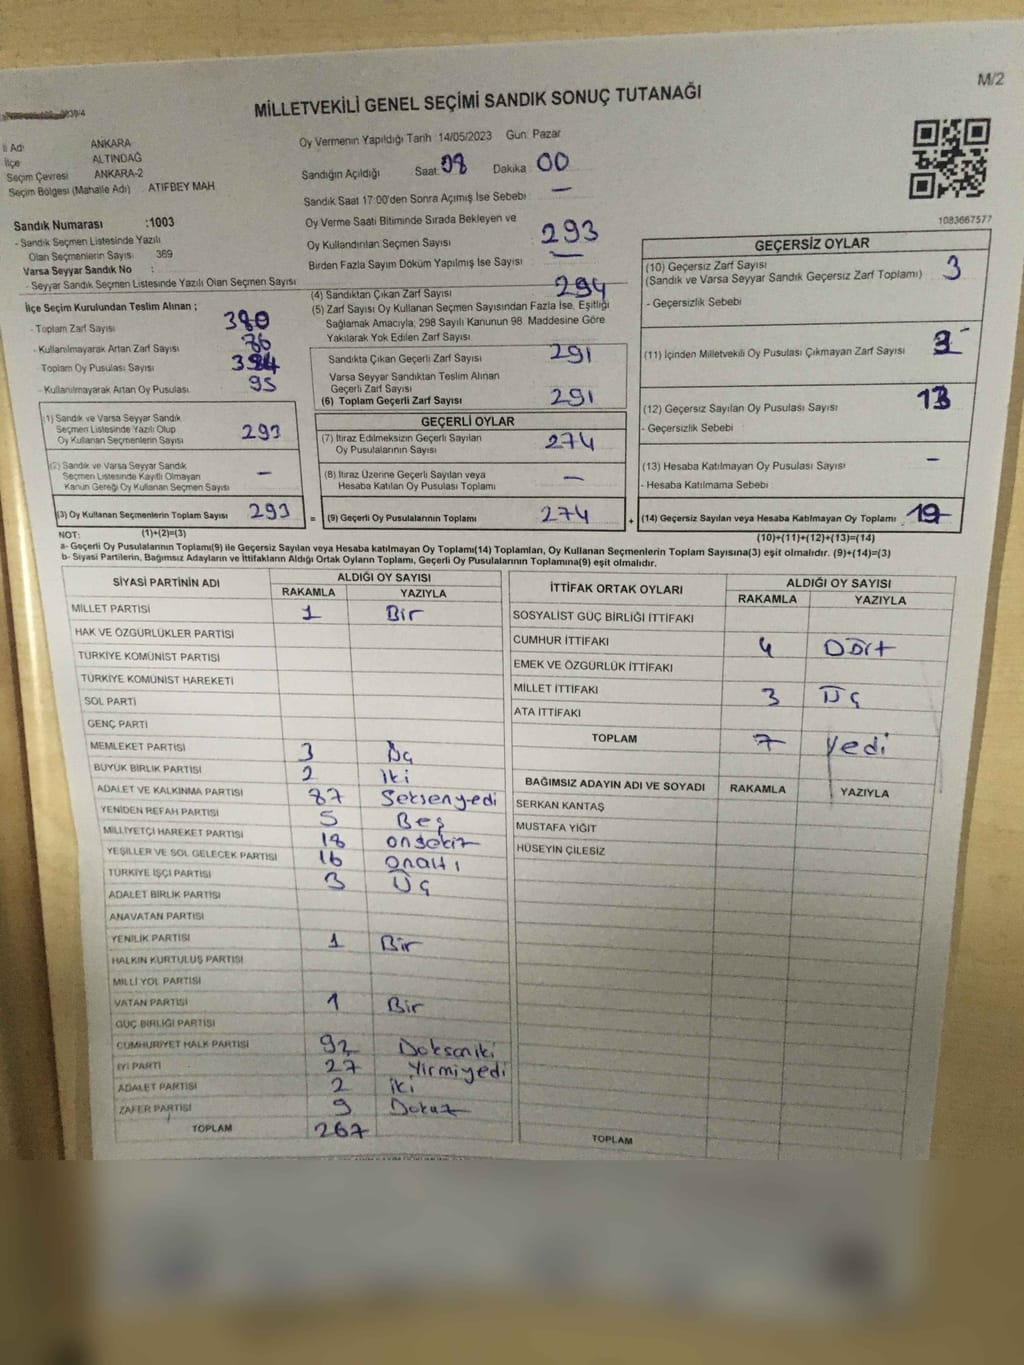 M/2
MİLLETVEKİLİ GENEL SEÇİMİ SANDIK SONUÇ TUTANAĞI
İl Adı ANKARA
İlçe ALTINDAĞ
Seçim Çevresi ANKARA-2
Seçim Bölgesi (Mahalle Adı) ATIFBEY MAH
Sandık Numarası :1003
- Sandık Seçmen Listesinde Yazılı
Olan Seçmenlerin Sayısı 369
Varsa Seyyar Sandık No :
- Seyyar Sandık Seçmen Listesinde Yazılı Olan Seçmen Sayısı
İlçe Seçim Kurulundan Teslim Alınan ;
- Toplam Zarf Sayısı 380
- Kullanılmayarak Artan Zarf Sayısı 86
Toplam Oy Pusulası Sayısı
- Kullanılmayarak Artan Oy Pusulası 95
(1) Sandık ve Varsa Seyyar Sandık
Seçmen Listesinde Yazılı Olup
Oy Kullanan Seçmenlerin Sayısı 293
(2) Sandık ve Varsa Seyyar Sandık
Seçmen Listesinde Kayıtlı Olmayan
Kanun Gereği Oy Kullanan Seçmen Sayısı —
(3) Oy Kullanan Seçmenlerin Toplam Sayısı 293
Oy Vermenin Yapıldığı Tarih 14/05/2023 Gün: Pazar
Sandığın Açıldığı Saat 08 Dakika 00
Sandık Saat 17:00'den Sonra Açımış İse Sebebi —
Oy Verme Saati Bitiminde Sırada Bekleyen ve
Oy Kullandırılan Seçmen Sayısı 293
Birden Fazla Sayım Döküm Yapılmış İse Sayısı —
(4) Sandıktan Çıkan Zarf Sayısı 294
(5) Zarf Sayısı Oy Kullanan Seçmen Sayısından Fazla İse, Eşitliği
Sağlamak Amacıyla; 298 Sayılı Kanunun 98. Maddesine Göre
Yakılarak Yok Edilen Zarf Sayısı
Sandıkta Çıkan Geçerli Zarf Sayısı 291
Varsa Seyyar Sandıktan Teslim Alınan
Geçerli Zarf Sayısı
(6) Toplam Geçerli Zarf Sayısı 291
GEÇERLİ OYLAR
(7) İtiraz Edilmeksizin Geçerli Sayılan
Oy Pusulalarının Sayısı 274
(8) İtiraz Üzerine Geçerli Sayılan veya
Hesaba Katılan Oy Pusulası Toplamı —
= (9) Geçerli Oy Pusulalarının Toplamı 274
1083667577
GEÇERSİZ OYLAR
(10) Geçersiz Zarf Sayısı
(Sandık ve Varsa Seyyar Sandık Geçersiz Zarf Toplamı) 3
- Geçersizlik Sebebi
(11) İçinden Milletvekili Oy Pusulası Çıkmayan Zarf Sayısı 3
(12) Geçersiz Sayılan Oy Pusulası Sayısı 13
- Geçersizlik Sebebi
(13) Hesaba Katılmayan Oy Pusulası Sayısı —
- Hesaba Katılmama Sebebi
+ (14) Geçersiz Sayılan veya Hesaba Katılmayan Oy Toplamı 19
NOT: (1)+(2)=(3)
(10)+(11)+(12)+(13)=(14)
a- Geçerli Oy Pusulalarının Toplamı(9) ile Geçersiz Sayılan veya Hesaba katılmayan Oy Toplamı(14) Toplamları, Oy Kullanan Seçmenlerin Toplam Sayısına(3) eşit olmalıdır. (9)+(14)=(3)
b- Siyasi Partilerin, Bağımsız Adayların ve İttifakların Aldığı Ortak Oyların Toplamı, Geçerli Oy Pusulalarının Toplamına(9) eşit olmalıdır.
SİYASİ PARTİNİN ADI ALDIĞI OY SAYISI
RAKAMLA YAZIYLA
MİLLET PARTİSİ 1 Bir
HAK VE ÖZGÜRLÜKLER PARTİSİ
TÜRKİYE KOMÜNİST PARTİSİ
TÜRKİYE KOMÜNİST HAREKETİ
SOL PARTİ
GENÇ PARTİ
MEMLEKET PARTİSİ 3 Üç
BÜYÜK BİRLİK PARTİSİ 2 iki
ADALET VE KALKINMA PARTİSİ 87 Seksenyedi
YENİDEN REFAH PARTİSİ 5 Beş
MİLLİYETÇİ HAREKET PARTİSİ 18 onsekiz
YEŞİLLER VE SOL GELECEK PARTİSİ 16 onaltı
TÜRKİYE İŞÇİ PARTİSİ 3 Üç
ADALET BİRLİK PARTİSİ
ANAVATAN PARTİSİ
YENİLİK PARTİSİ 1 Bir
HALKIN KURTULUŞ PARTİSİ
MİLLİ YOL PARTİSİ
VATAN PARTİSİ 1 Bir
GÜÇ BİRLİĞİ PARTİSİ
CUMHURİYET HALK PARTİSİ 92 Doksaniki
İYİ PARTİ 27 Yirmiyedi
ADALET PARTİSİ 2 iki
ZAFER PARTİSİ 9 Dokuz
TOPLAM 267
İTTİFAK ORTAK OYLARI ALDIĞI OY SAYISI
RAKAMLA YAZIYLA
SOSYALİST GÜÇ BİRLİĞİ İTTİFAKI
CUMHUR İTTİFAKI 4 Dört
EMEK VE ÖZGÜRLÜK İTTİFAKI
MİLLET İTTİFAKI 3 Üç
ATA İTTİFAKI
TOPLAM 7 Yedi
BAĞIMSIZ ADAYIN ADI VE SOYADI RAKAMLA YAZIYLA
SERKAN KANTAŞ
MUSTAFA YİĞİT
HÜSEYİN ÇİLESİZ
TOPLAM